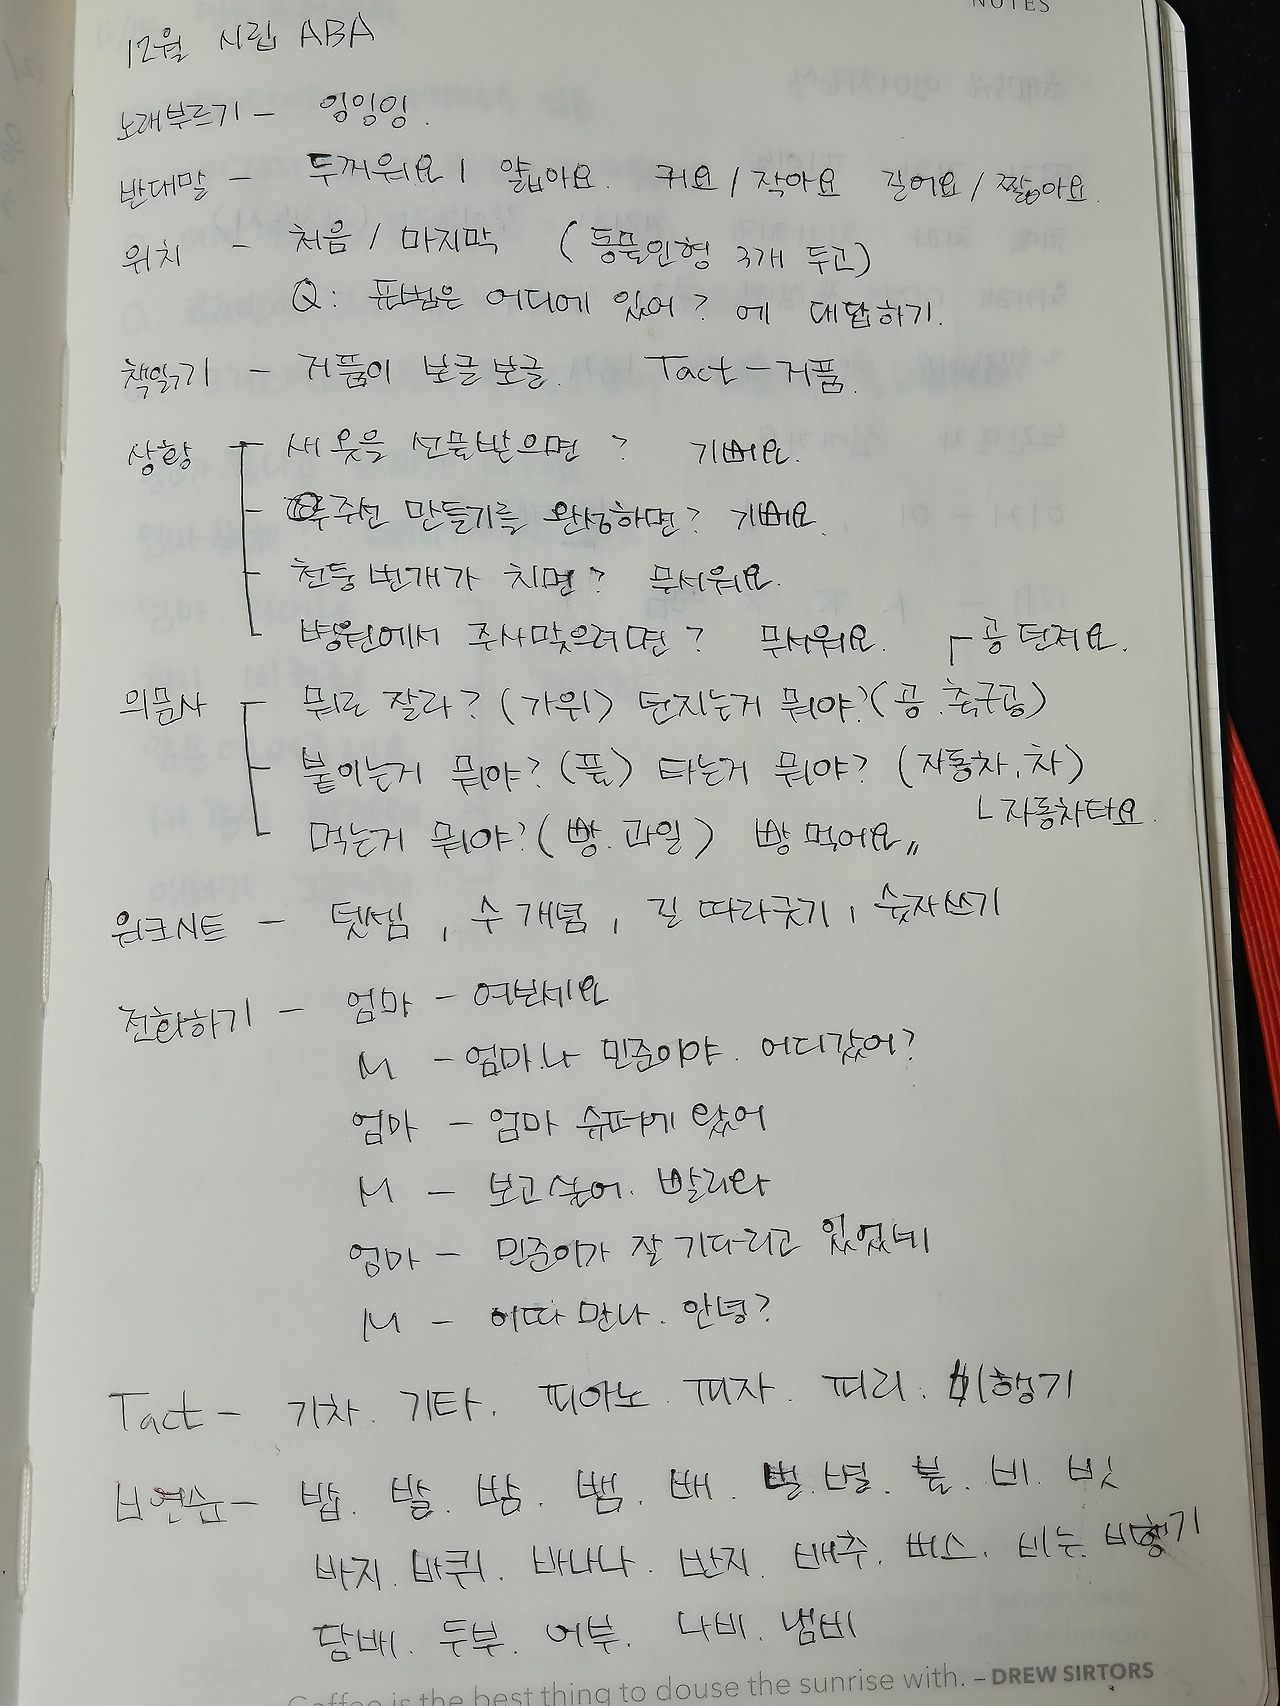 NOTES
12월 시립 ABA
노래부르기 - 잉잉잉.
반대말 - 두꺼워요 / 얇아요. 커요 / 작아요 길어요 / 짧아요.
위치 - 처음 / 마지막 (동물인형 3개 두고)
Q: 표범은 어디에 있어? 에 대답하기.
책읽기 - 거품이 보글보글. Tact - 거품.
상황 - 새 옷을 선물받으면? 기뻐요.
- 우주선 만들기를 완성하면? 기뻐요.
- 천둥번개가 치면? 무서워요.
병원에서 주사맞으려면? 무서워요. ┌ 공 던져요.
의문사 - 뭐로 잘라? (가위) 던지는거 뭐야? (공. 축구공)
- 붙이는거 뭐야? (풀) 타는거 뭐야? (자동차. 차)
└ 자동차타요.
먹는거 뭐야? (빵. 과일) 빵 먹어요 〃
워크시트 - 덧셈, 수 개념, 길 따라긋기, 숫자쓰기
전화하기 - 엄마 - 여보세요
M - 엄마. 나 민준이야. 어디갔어?
엄마 - 엄마 슈퍼에 왔어
M - 보고싶어. 빨리와
엄마 - 민준이가 잘 기다리고 있었네
M - 이따 만나. 안녕?
Tact - 기차. 기타. 피아노. 피자. 피리. 비행기
ㅂ연습 - 밥. 발. 밤. 뱀. 배. 벌. 별. 불. 비. 빗
바지. 바퀴. 바나나. 반지. 배추. 버스. 비누. 비행기
담배. 두부. 어부. 나비. 냄비
Coffee is the best thing to douse the sunrise with. – DREW SIRTORS